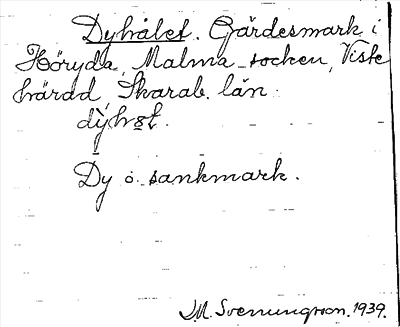 Dyhålet. Gärdesmark i
Höryda, Malma socken, Viste
härad, Skarab. län.
Dy o. sankmark.
M. Svenungsson. 1939.